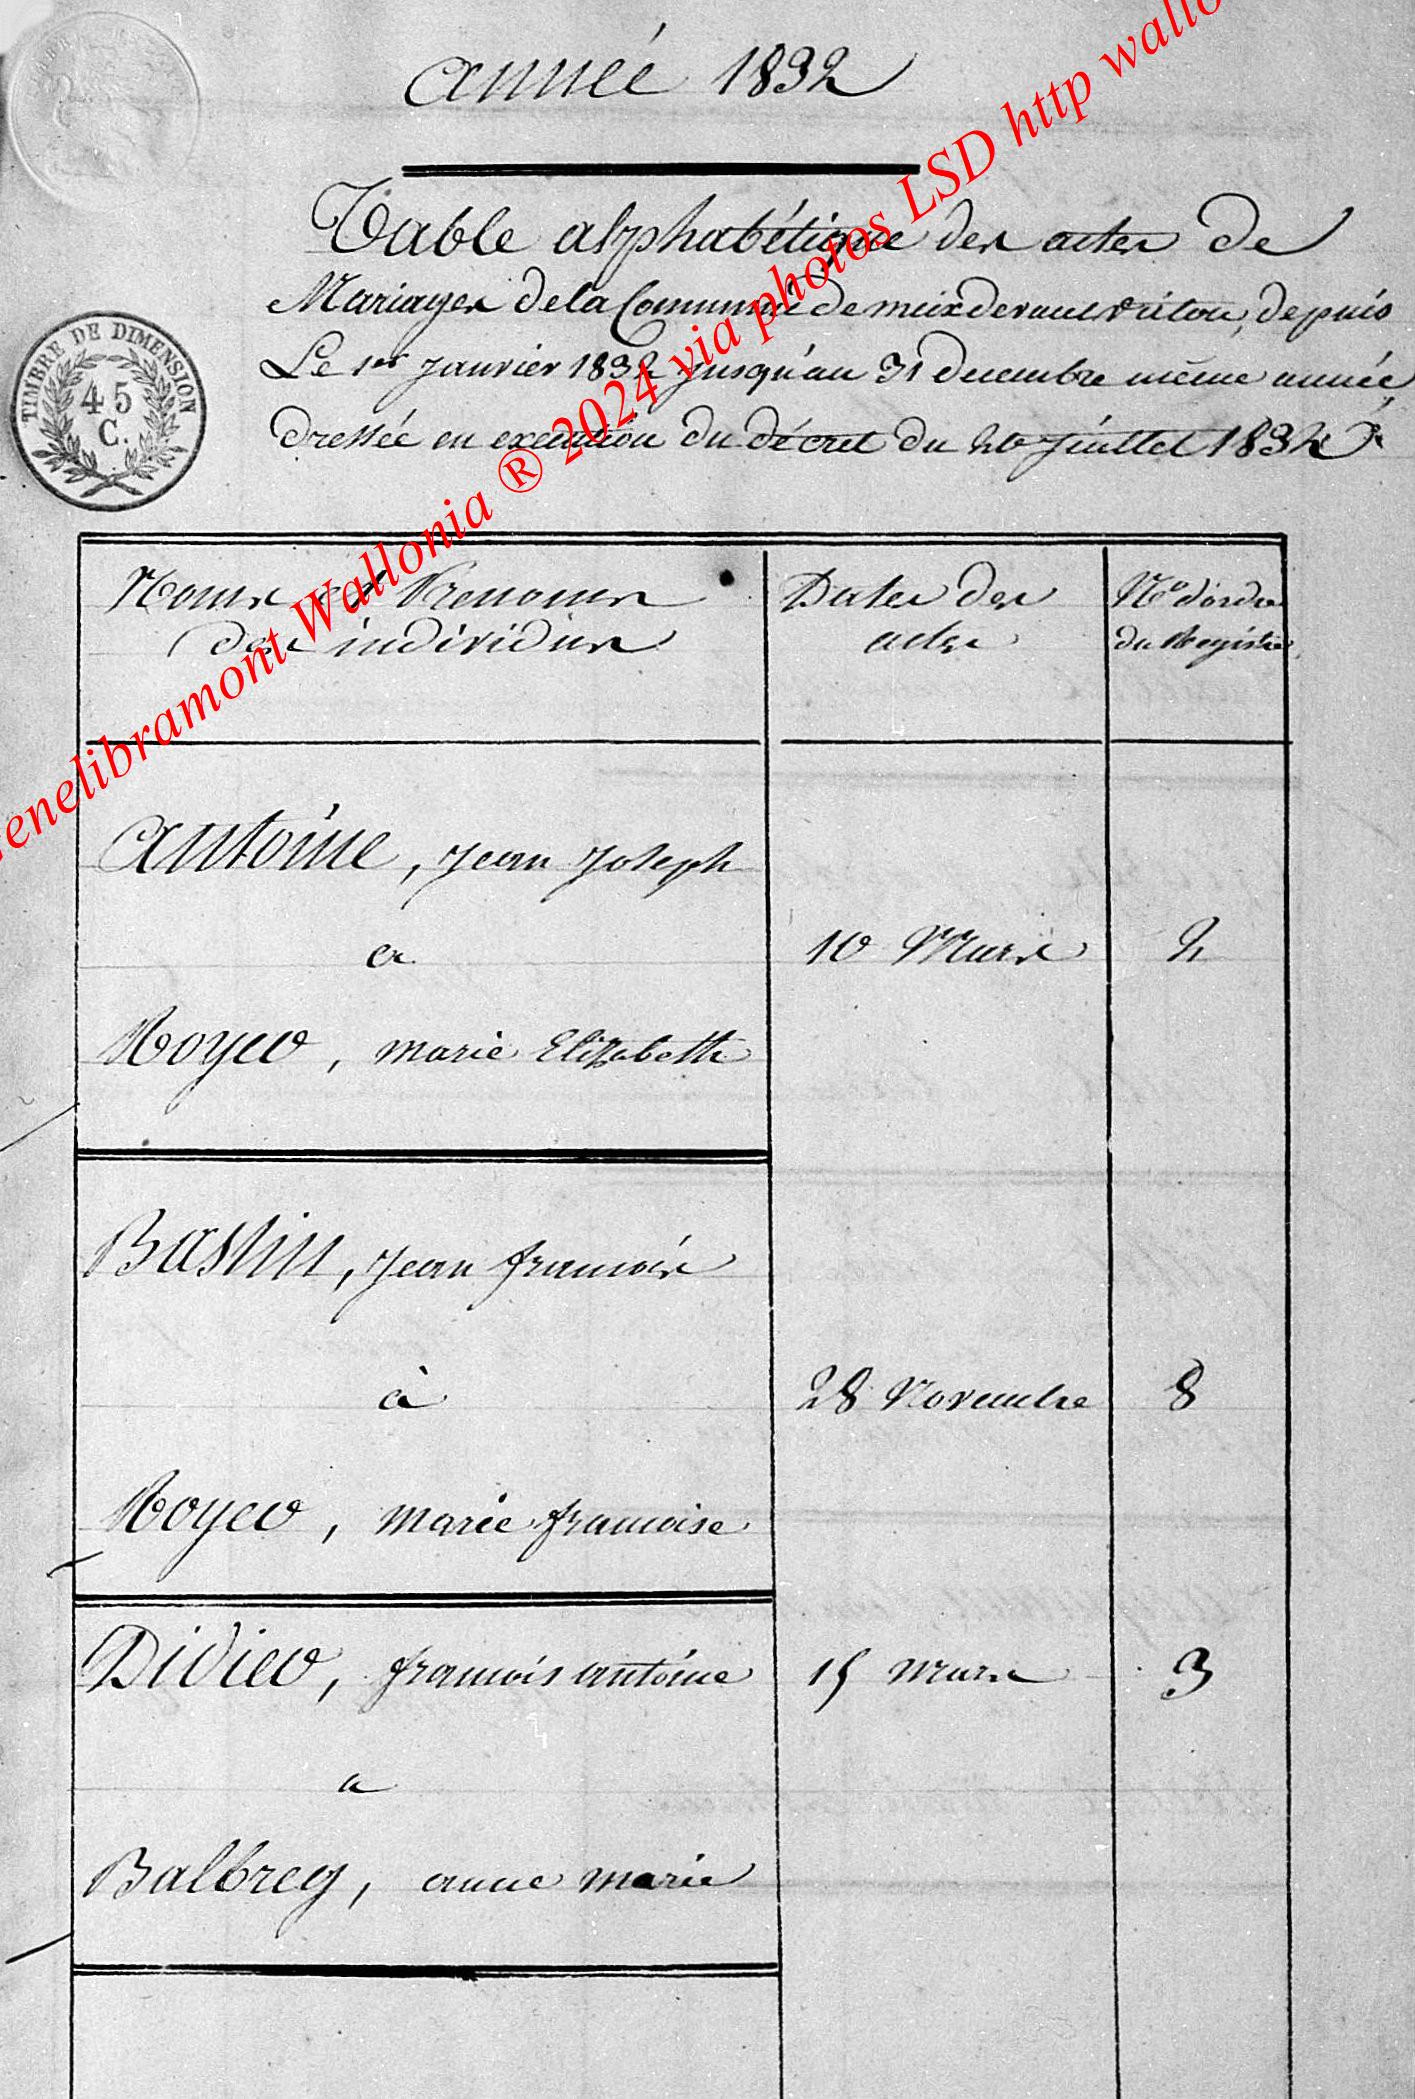 année 1832
Table alphabétique des actes de
Mariages de la Commune de meix devant virton, depuis
Le 1er Janvier 1832 jusqu'au 31 decembre même année,
dressée en exécution du décret du 20 juillet 1832
TIMBRE DE DIMENSION
45
C.
Noms et Prenoms
des individus
Dates des
actes
No d'ordre
du Registre
antoine, jean joseph
a
10 Mars
2
Noyeo, marie Elizabeth
Bastin, jean francois
à
28 Novembre
8
Noyeo, marie francoise
Didieo, francois antoine
15 mars
3
a
Balbrey, anne marie
enelibramont Wallonia ® 2024 via photos LSD http wallo